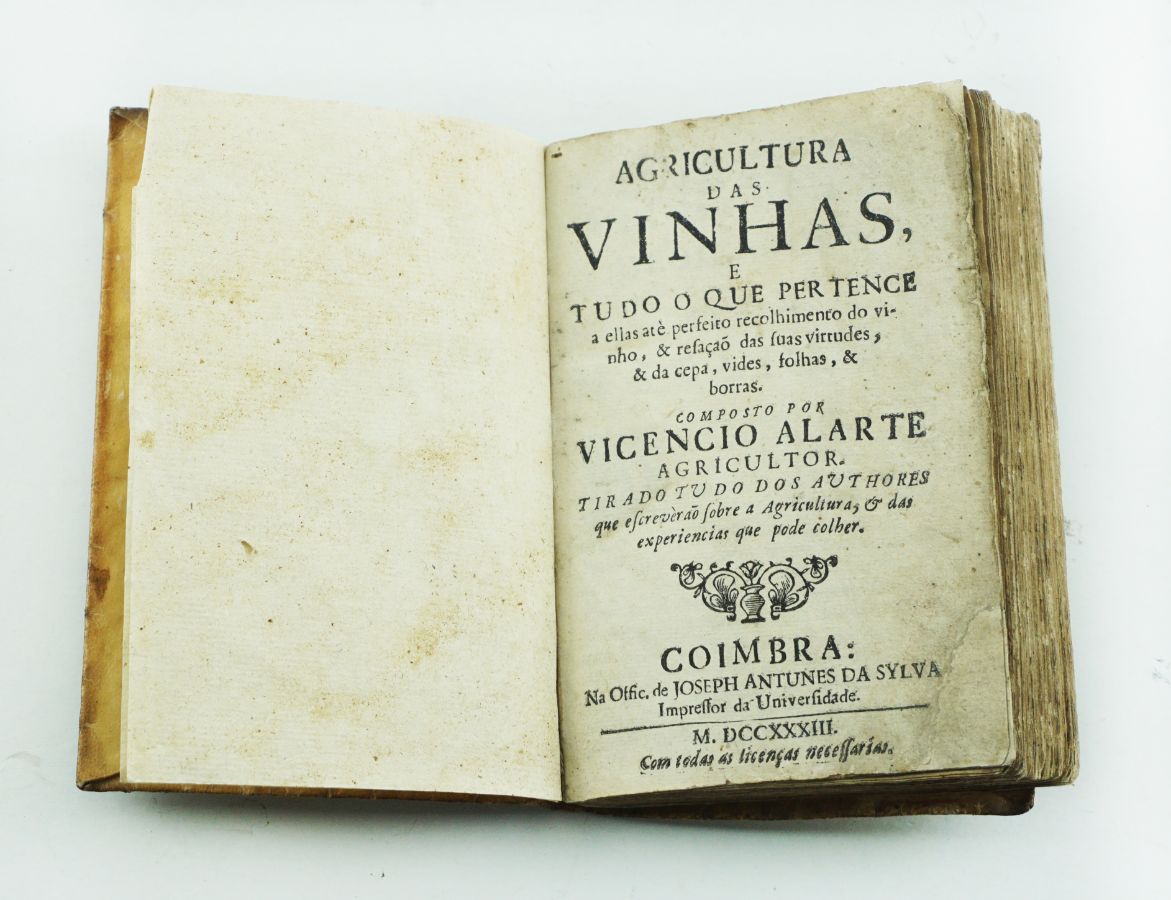 AGRICULTURA
DAS
VINHAS,
E
TUDO O QUE PERTENCE
a ellas atè perfeito recolhimento do vi-
nho, & relaçaõ das ſuas virtudes,
& da cepa, vides, folhas, &
borras.
COMPOSTO POR
VICENCIO ALARTE
AGRICULTOR.
TIRADO TUDO DOS AUTHORES
que eſcrevèraõ ſobre a Agricultura, & das
experiencias que pode colher.
COIMBRA:
Na Offic. de JOSEPH ANTUNES DA SYLVA
Impreſſor da Univerſidade.
M. DCCXXXIII.
Com todas as licenças neceſſarias.